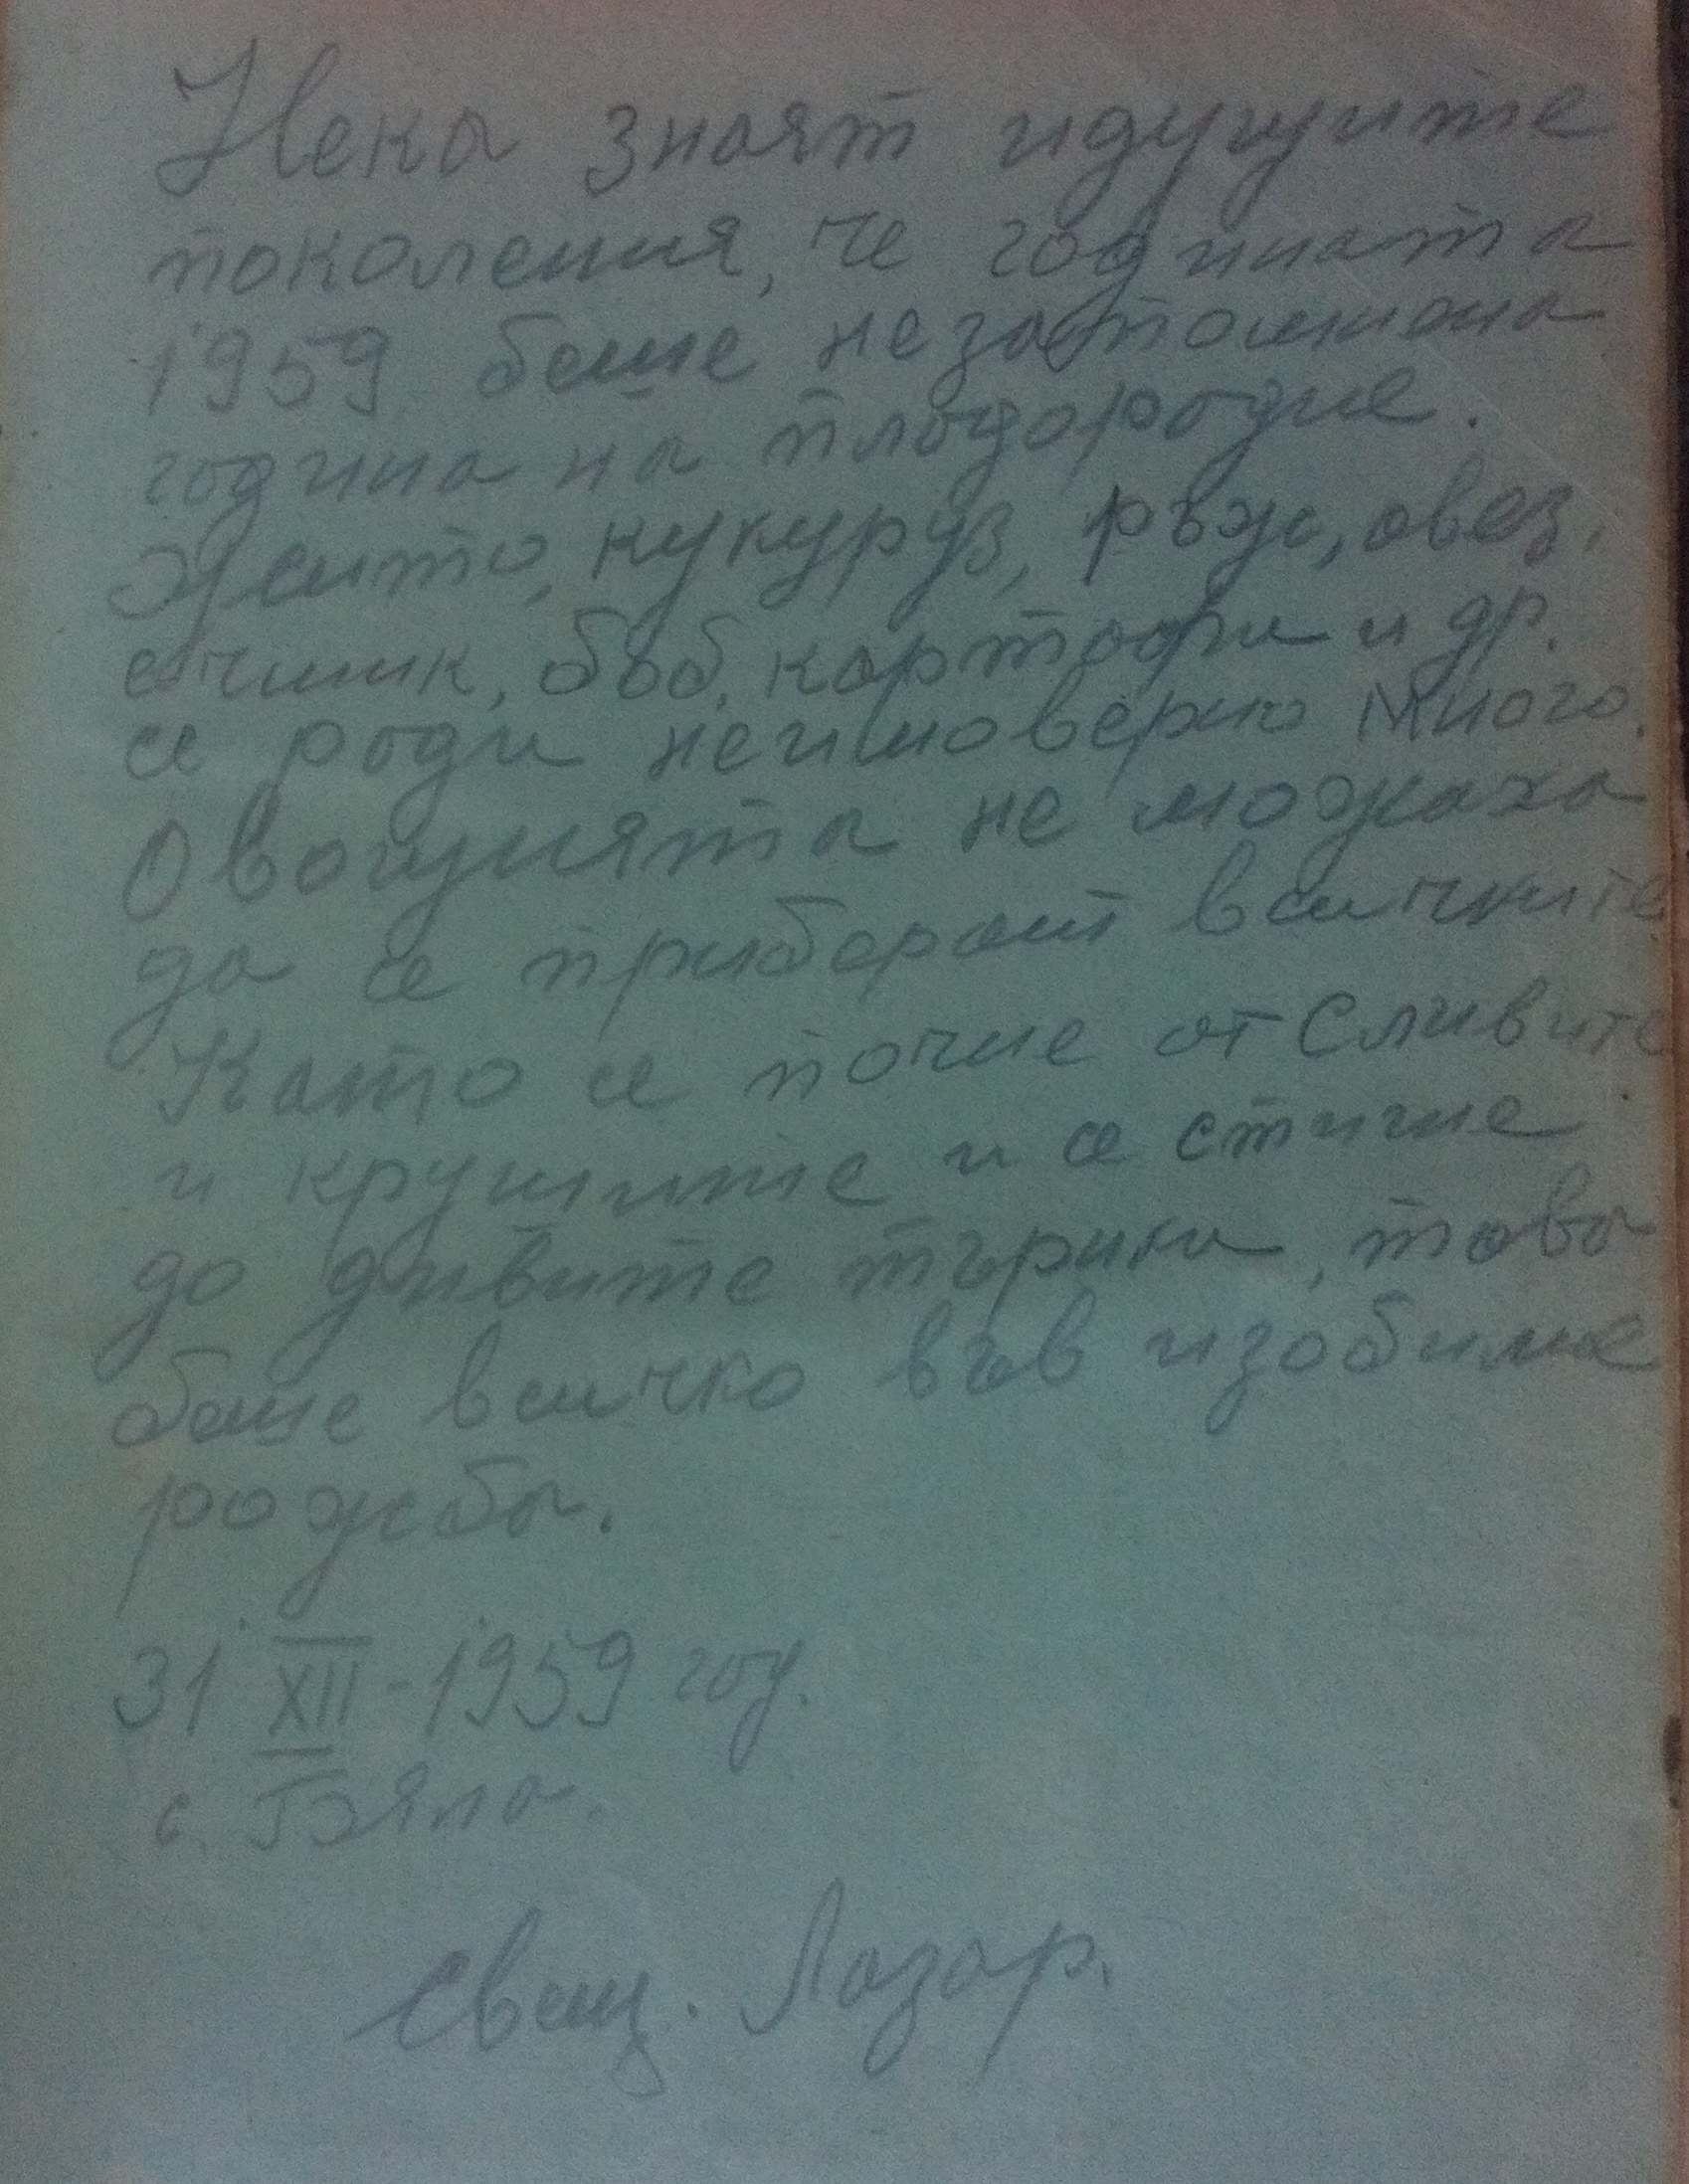 Нека знаят идущите
поколения, че годината
1959 беше незапомнена
година на плодородие.
Жито, кукуруз, ръж, овез,
ечмик, боб, картофи и др.
се роди неимоверно много.
Овощията не можаха
да се приберат всичките
Като се почне от Сливите
и крушите и се стигне
до дивите търнки, това
беше всичко във изобилие
рожба.
31 XII - 1959 год.
с. Бяла.
Свещ. Лазар.